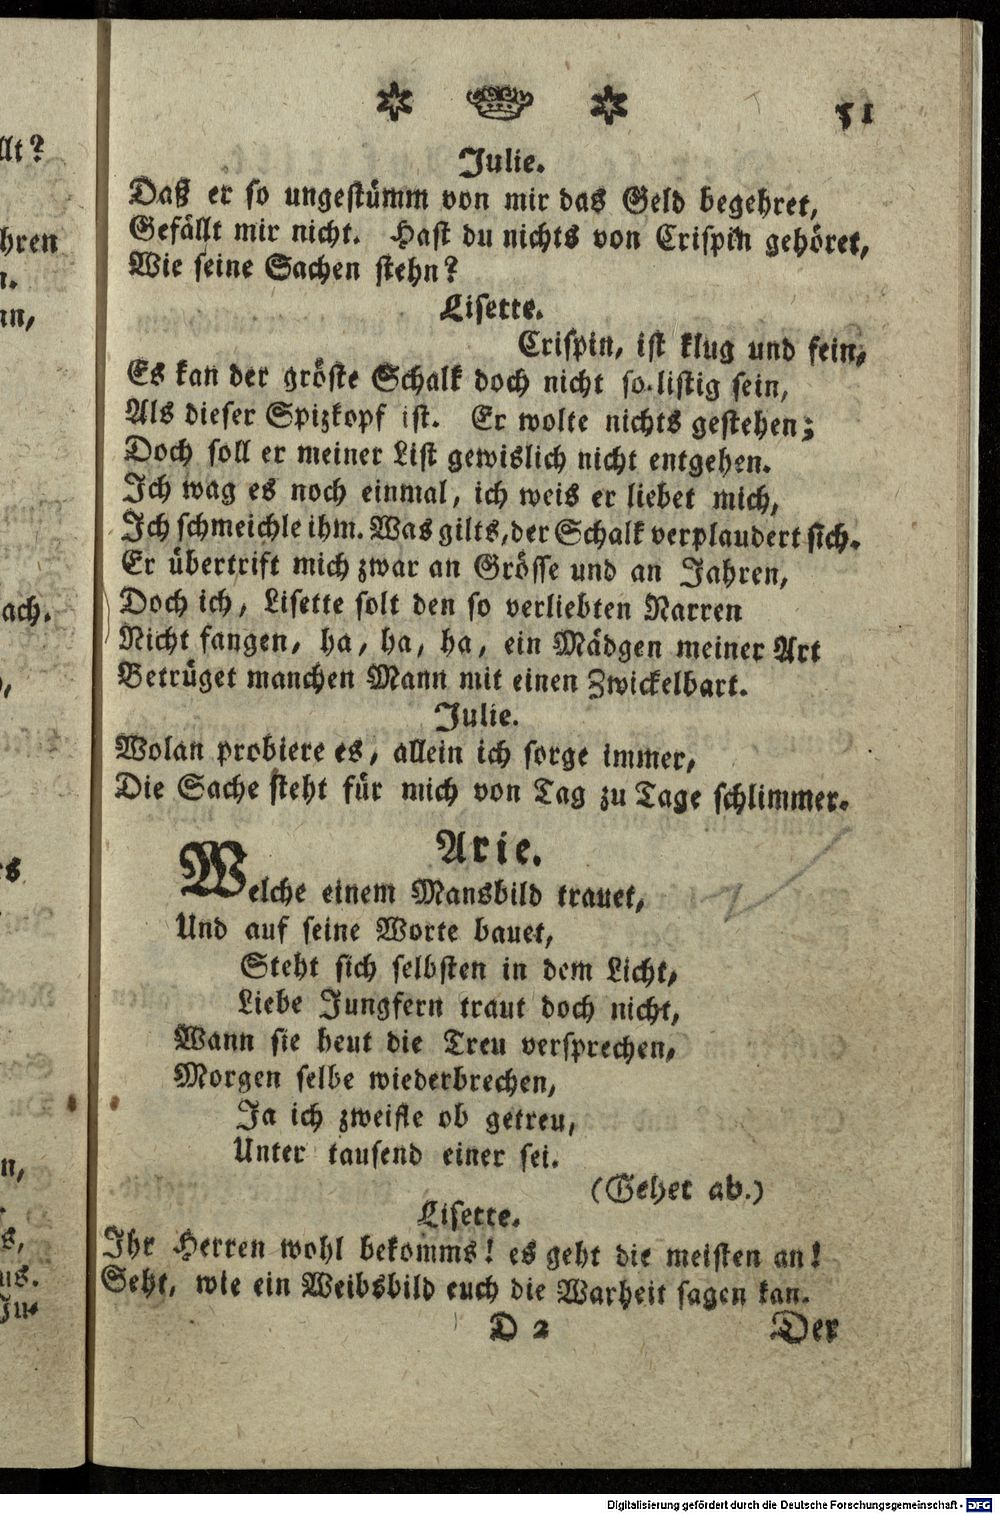 51
Julie.
Daß er so ungestümm von mir das Geld begehret,
Gefällt mir nicht. Hast du nichts von Crispin gehöret,
Wie seine Sachen stehn?
Lisette.
Crispin, ist klug und fein,
Es kan der gröste Schalk doch nicht so listig sein,
Als dieser Spizkopf ist. Er wolte nichts gestehen;
Doch soll er meiner List gewislich nicht entgehen.
Ich wag es noch einmal, ich weis er liebet mich,
Ich schmeichle ihm. Was gilts, der Schalk verplaudert sich.
Er übertrift mich zwar an Grösse und an Jahren,
Doch ich, Lisette solt den so verliebten Narren
Nicht fangen, ha, ha, ha, ein Mädgen meiner Art
Betrüget manchen Mann mit einen Zwickelbart.
Julie.
Wolan probiere es, allein ich sorge immer,
Die Sache steht für mich von Tag zu Tage schlimmer.
Arie.
Welche einem Mansbild trauet,
Und auf seine Worte bauet,
Steht sich selbsten in dem Licht,
Liebe Jungfern traut doch nicht,
Wann sie heut die Treu versprechen,
Morgen selbe wiederbrechen,
Ja ich zweifle ob getreu,
Unter tausend einer sei.
(Gehet ab.)
Lisette.
Ihr Herren wohl bekomms! es geht die meisten an!
Seht, wie ein Weibsbild euch die Warheit sagen kan.
D 2 Der
llt?
hren
n.
nn,
ach.
es
n,
s,
us.
Ju-
Digitalisierung gefördert durch die Deutsche Forschungsgemeinschaft - DFG